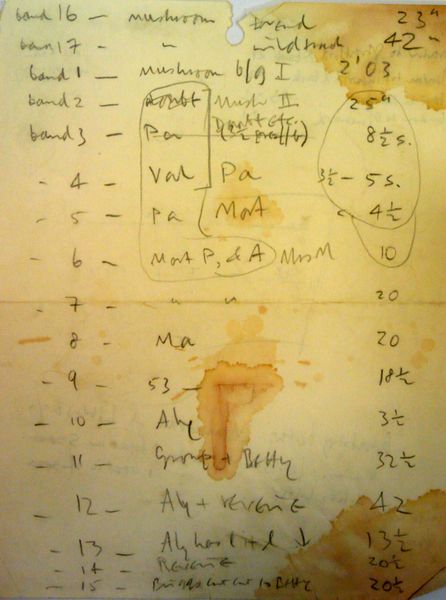 band 16 - mushroom 23"
band 17 - " 42"
band 1 - Mushroom b/g I 2'03
band 2 - Mush II 25"
Doubt etc.
band 3 - Pa 8½ s.
- 4 - Val Pa 3½ - 5 s.
- 5 - Pa Mort 4½
- 6 - Mort P, & A Mrs M 10
- 7 - " " 20
- 8 - Ma 20
- 9 - 53 - 18½
- 10 - Aly 3½
- 11 - Group + Betty 32½
- 12 - Aly + reverse 42
- 13 - Aly 13½
- 14 - Reverse 20½
- 15 - to Betty 20½